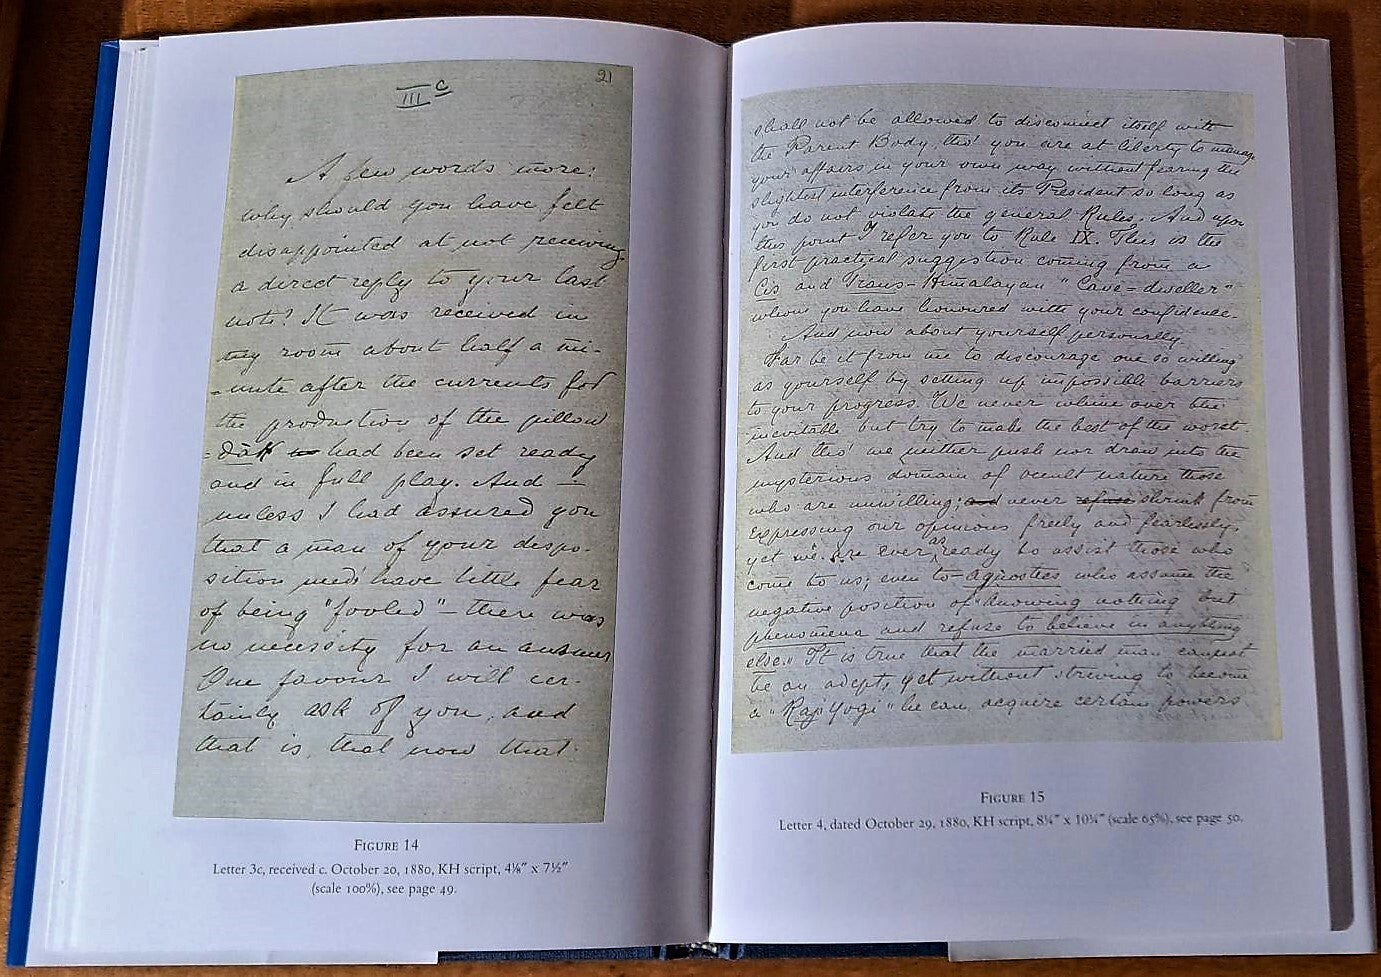 21
III c
A few words more:
why should you have felt
disappointed at not receiving
a direct reply to your last
note? It was received in
my room about half a mi-
-nute after the currents for
the production of the pillow
-dâk had been set ready
and in full play. And —
unless I had assured you
that a man of your dispo-
sition need have little fear
of being "fooled" — there was
no necessity for an answer
One favour I will cer-
tainly ask of you, and
that is, that now that
FIGURE 14
Letter 3c, received c. October 20, 1880, KH script, 4⅛″ x 7½″
(scale 100%), see page 49.
shall not be allowed to disconnect itself with
the Parent Body, tho' you are at liberty to manage
your affairs in your own way without fearing the
slightest interference from its President so long as
you do not violate the general Rules. And upon
this point I refer you to Rule IX. This is the
first practical suggestion coming from a
Cis and Trans-Himalayan "Cave-dweller"
whom you have honoured with your confidence.
And now about yourself personally.
Far be it from me to discourage one so willing
as yourself by setting up impossible barriers
to your progress. We never whine over the
inevitable but try to make the best of the worst.
And tho' we neither push nor draw into the
mysterious domain of occult nature those
who are unwilling; and never refuse shrink from
expressing our opinions freely and fearlessly,
yet we are ever as ready to assist those who
come to us; even to — agnostics who assume the
negative position of "knowing nothing but
phenomena and refuse to believe in anything
else." It is true that the married man cannot
be an adept, yet without striving to become
a "Raja Yogi" he can acquire certain powers
FIGURE 15
Letter 4, dated October 29, 1880, KH script, 8¼″ x 10¼″ (scale 65%), see page 50.